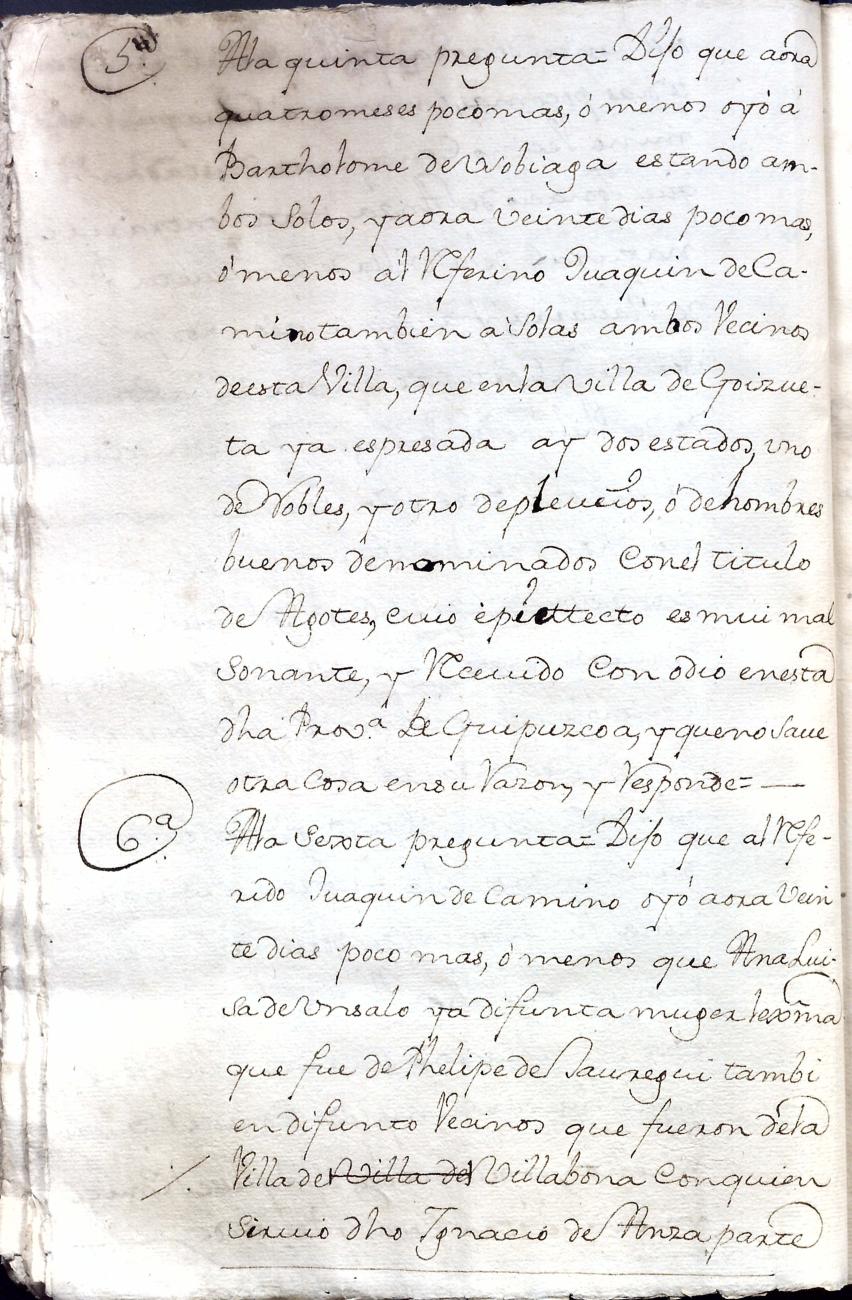 5.ª
Ala quinta pregunta = Dijo que aora
quatromeses pocomas, ó menos oyó á
Bartholome de Vobiaga estando am-
bos Solos, y aora veinte dias poco mas,
ó menos al Referino Juaquin de Ca-
mino tambien a Solas ambos Vecinos
de esta Villa, que en la villa de Goizue-
ta ya espresada ay dos estados, uno
de Nobles, y otro de pleveios, ó de hombres
buenos denominados Con el titulo
de Agotes, cuio epitecto es mui mal
Sonante, y Recevido Con odio en esta
dha Prov.ª de Guipuzcoa, y que no save
otra Cosa en su Razon, y Responde =
6.ª
Ala Sexta pregunta = Dijo que al Refe-
rido Juaquin de Camino oyó aora Vein
te dias poco mas, ó menos que Ana Lui-
sa de Unsalo ya difunta muger lexma
que fue de Phelipe de Jauregui tambi
en difunto Vecinos que fueron de la
Villa de Villa de Villabona Con quien
Sirvio dho Ygnacio de Anza parte